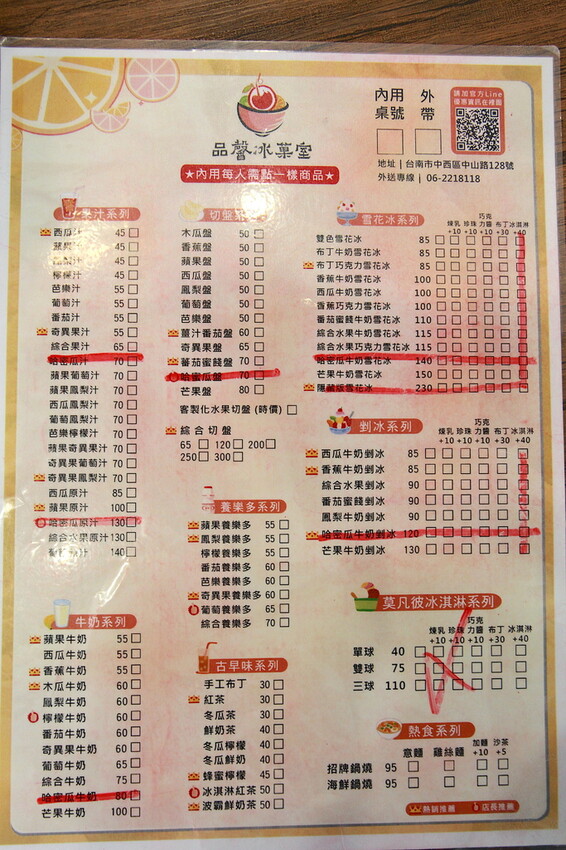 內用
桌號
外
帶
請加官方Line
優惠資訊在裡面
品馨冰菓室
★內用每人需點一樣商品★
地址 | 台南市中西區中山路128號
外送專線 | 06-2218118
果汁系列
西瓜汁 45
蘋果汁 45
45
檸檬汁 45
芭樂汁 55
葡萄汁 55
番茄汁 55
奇異果汁 65
綜合果汁 65
哈密瓜汁 70
蘋果葡萄汁 70
蘋果鳳梨汁 70
西瓜鳳梨汁 70
葡萄鳳梨汁 70
芭樂檸檬汁 70
蘋果奇異果汁 70
奇異果葡萄汁 70
奇異果鳳梨汁 70
西瓜原汁 85
蘋果原汁 100
哈密瓜原汁 130
綜合水果原汁 130
原汁 140
牛奶系列
蘋果牛奶 55
西瓜牛奶 55
香蕉牛奶 55
木瓜牛奶 60
鳳梨牛奶 60
檸檬牛奶 60
番茄牛奶 60
奇異果牛奶 60
葡萄牛奶 65
綜合牛奶 75
哈密瓜牛奶 80
芒果牛奶 100
切盤系列
木瓜盤 50
香蕉盤 50
蘋果盤 50
西瓜盤 50
鳳梨盤 50
葡萄盤 50
芭樂盤 50
薑汁番茄盤 60
奇異果盤 60
蕃茄蜜餞盤 70
哈蜜瓜盤 70
芒果盤 80
客製化水果切盤 (時價)
綜合切盤
65 120 200
250 300
養樂多系列
蘋果養樂多 55
鳳梨養樂多 55
檸檬養樂多 55
番茄養樂多 60
芭樂養樂多 60
奇異果養樂多 60
葡萄養樂多 65
綜合養樂多 70
古早味系列
手工布丁 30
紅茶 30
冬瓜茶 30
鮮奶茶 40
冬瓜檸檬 40
冬瓜鮮奶 40
蜂蜜檸檬 45
冰淇淋紅茶 50
波霸鮮奶茶 50
雪花冰系列
煉乳 珍珠 巧克力醬 布丁 冰淇淋
+10 +10 +10 +30 +40
雙色雪花冰 85
布丁牛奶雪花冰 85
布丁巧克力雪花冰 85
香蕉牛奶雪花冰 100
西瓜牛奶雪花冰 100
香蕉巧克力雪花冰 100
番茄蜜餞牛奶雪花冰 110
綜合水果牛奶雪花冰 115
綜合水果巧克力雪花冰 115
哈密瓜牛奶雪花冰 140
芒果牛奶雪花冰 150
隱藏版雪花冰 230
剉冰系列
煉乳 珍珠 巧克力醬 布丁 冰淇淋
+10 +10 +10 +30 +40
西瓜牛奶剉冰 85
香蕉牛奶剉冰 85
綜合水果剉冰 90
番茄蜜餞剉冰 90
鳳梨牛奶剉冰 90
哈密瓜牛奶剉冰 120
芒果牛奶剉冰 130
莫凡彼冰淇淋系列
煉乳 珍珠 巧克力醬 布丁 冰淇淋
+10 +10 +10 +30 +40
單球 40
雙球 75
三球 110
熱食系列
意麵 雞絲麵 加麵 沙茶
+10 +5
招牌鍋燒 95
海鮮鍋燒 95
熱銷推薦 店長推薦